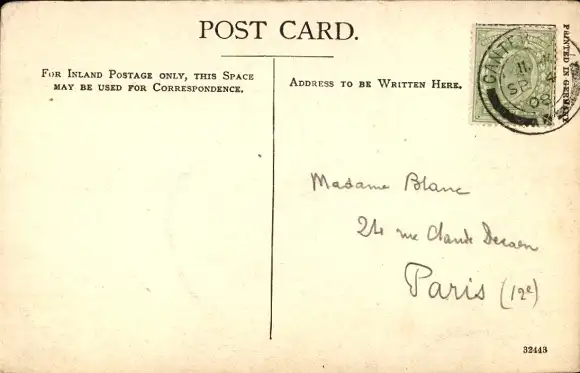 POST CARD.
FOR INLAND POSTAGE ONLY, THIS SPACE
MAY BE USED FOR CORRESPONDENCE.
ADDRESS TO BE WRITTEN HERE.
PRINTED IN GERMANY
SP 4
08
Madame Blanc
24 rue Claude Decaen
Paris (12e)
32443